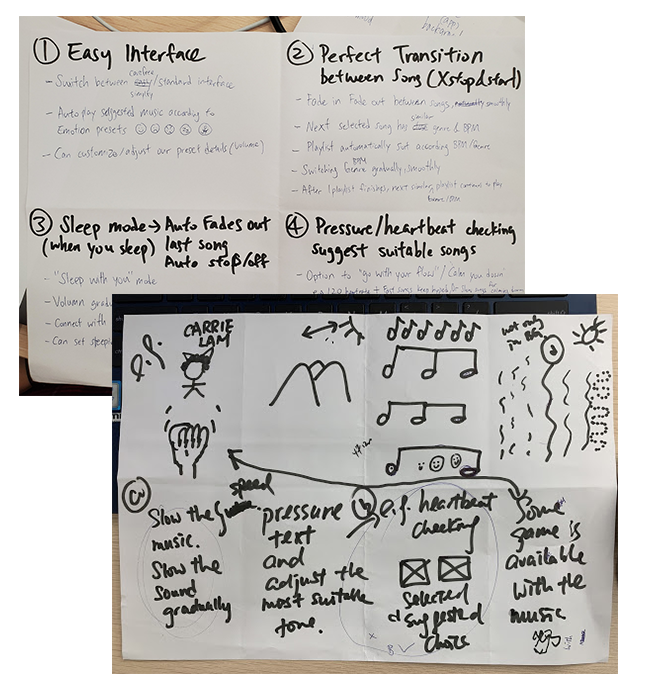 (app)
① Easy Interface
- Switch between carefree/standard interface
simplify
- Autoplay suggested music according to
Emotion presets
- Can customize/adjust our preset details (volume)
② Perfect Transition
between Song (X stop & start)
- Fade in Fade out between songs, smoothly
similar
- Next selected song has genre & BPM
- Playlist automatically sort according BPM/Genre
BPM
- Switching Genre gradually, smoothly
- After 1 playlist finishes, next coming playlist continue to play
③ Sleep mode → Auto Fades out
(when you sleep) last song
Auto stop/off
- "Sleep with you" mode
- Volumn gradu
- Connect with
- Can set sleep
④ Pressure/heartbeat checking
suggest suitable songs
- Option to "go with your flow"/"Calm you down"
CARRIE
LAM
not only
speed
Slow the
music.
Slow the
sound
gradually
pressure
test
and
adjust the
most suitable
tone.
e.g. heartbeat
checking
selected
suggested
choice
Some
game is
available
with the
music